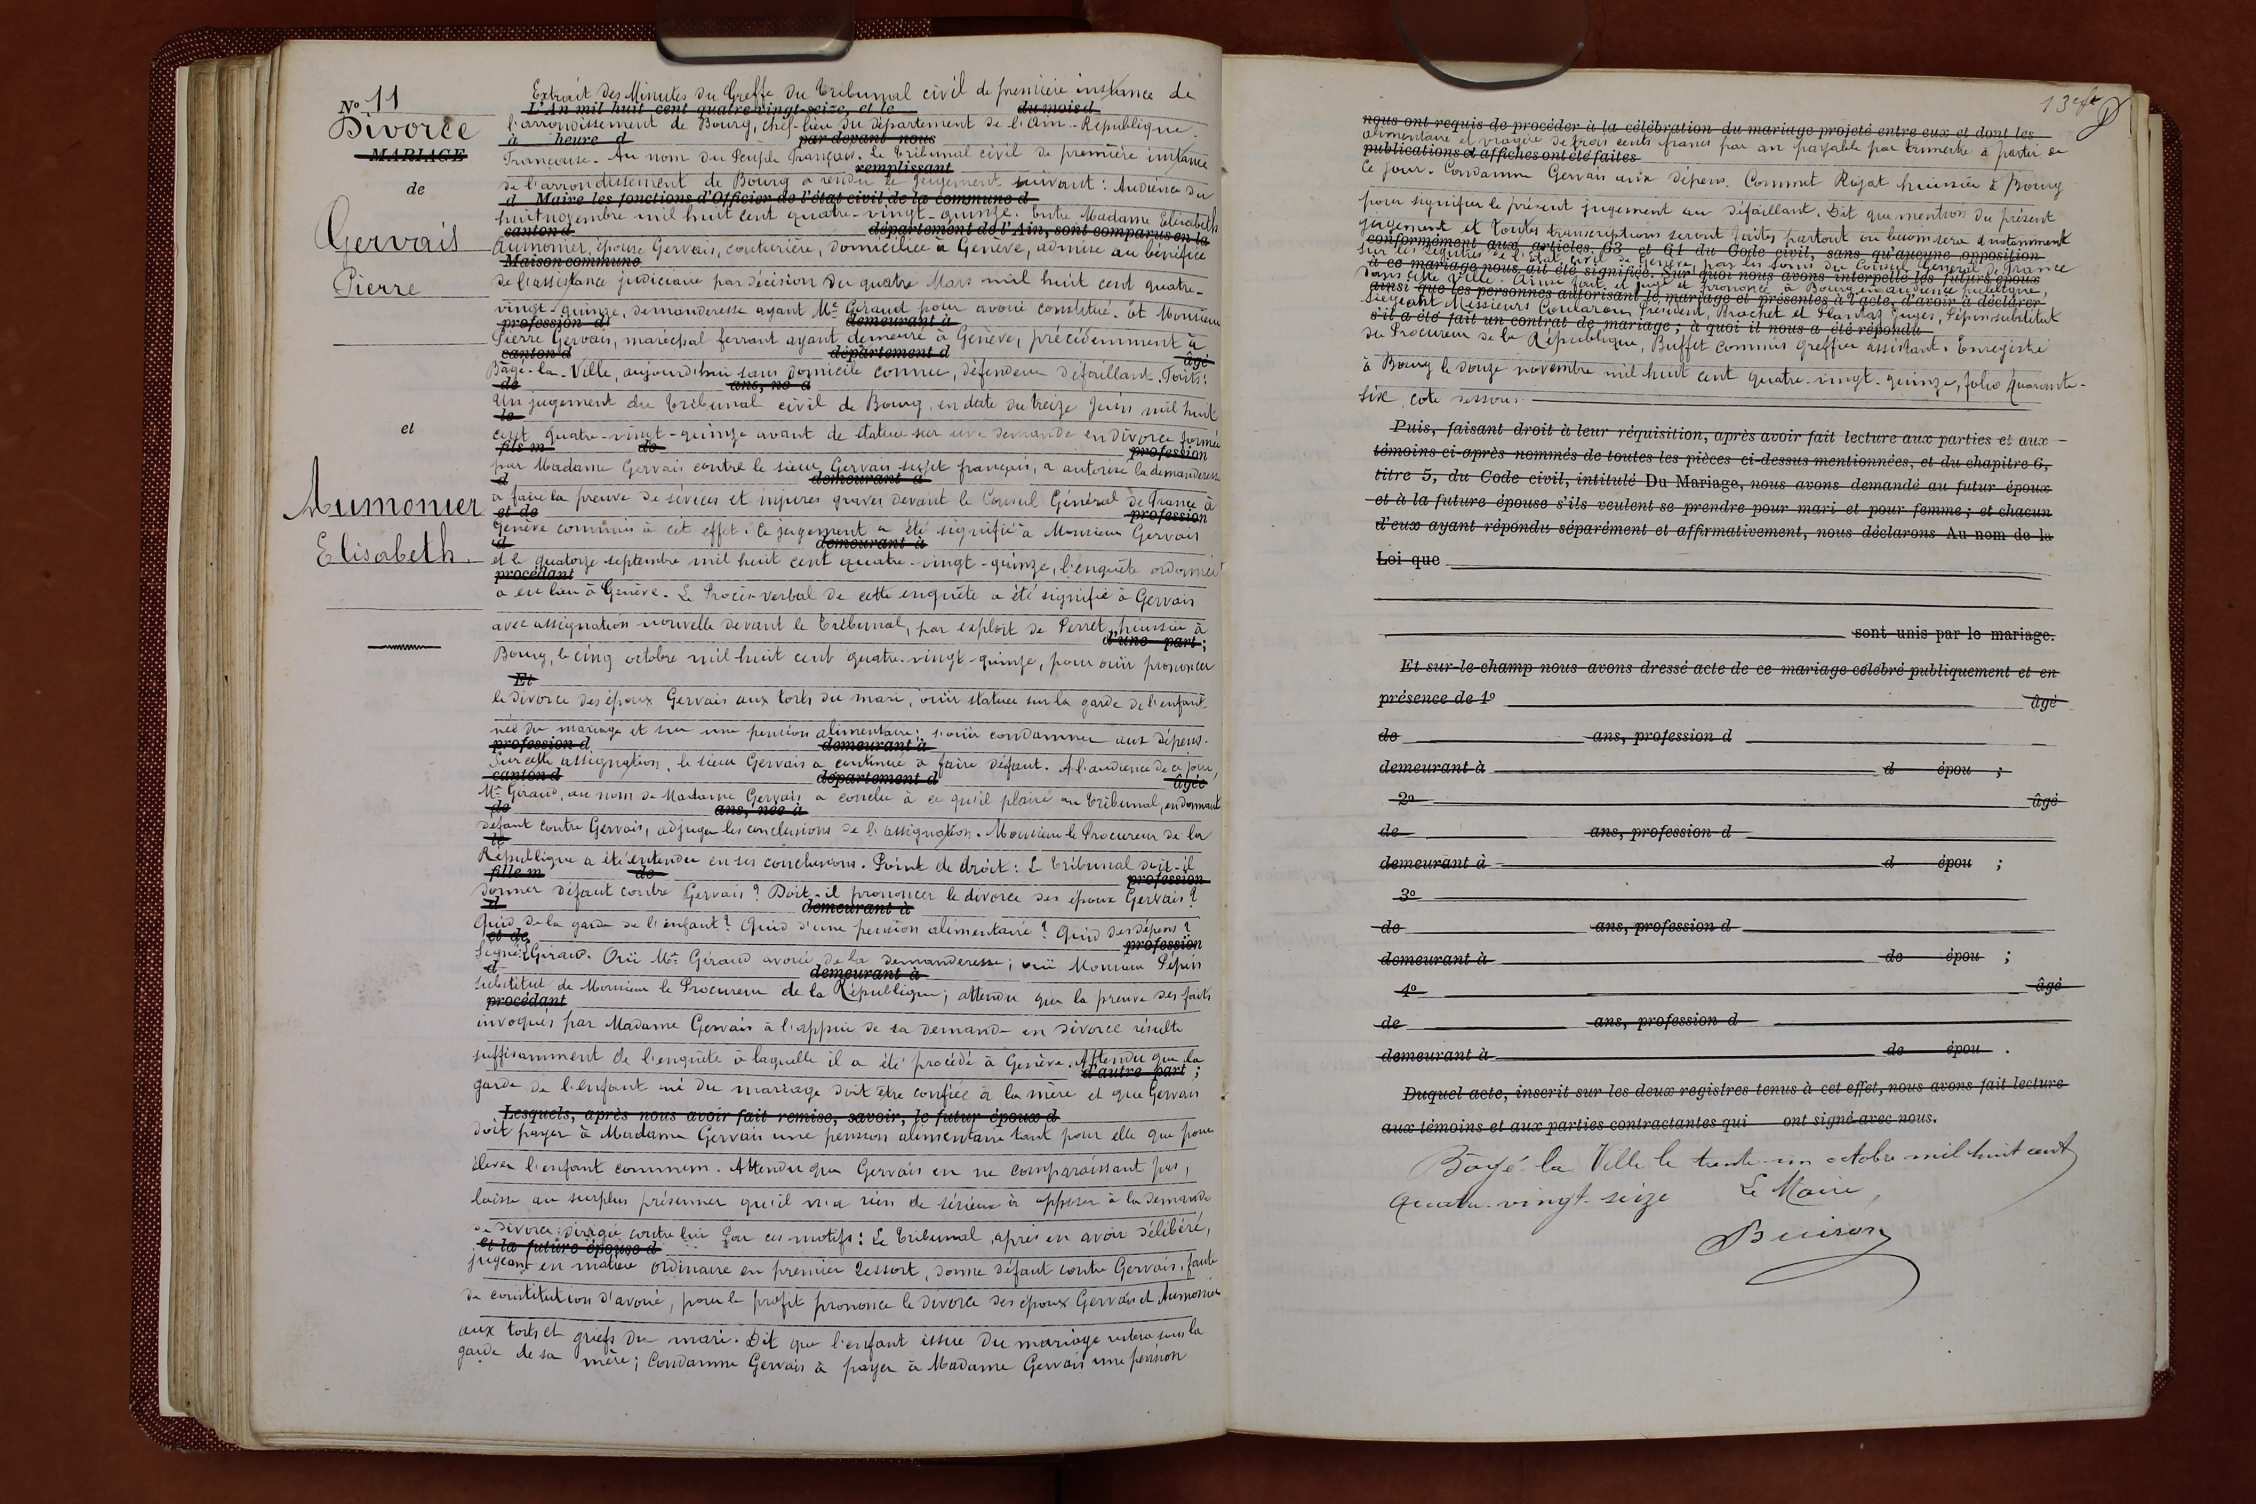 Nº 11
Divorce
MARIAGE
de
Gervais
Pierre
et
Aumonier
Elisabeth.
Extrait des Minutes du Greffe du Tribunal civil de première instance de
L'An mil huit cent quatre-vingt-seize, et le du mois d
l'arrondissement de Bourg, chef-lieu du département de l'Ain - République
à heure d par-devant nous
Française. Au nom du Peuple Français. Le Tribunal civil de première instance
remplissant
de l'arrondissement de Bourg a rendu le jugement suivant : Audience du
d Maire les fonctions d'Officier de l'état civil de la commune d
huit novembre mil huit cent quatre-vingt-quinze. Entre Madame Elisabeth
canton d département de l'Ain, sont comparus en la
Aumonier, épouse Gervais, couturière, domiciliée à Genève, admise au bénéfice
Maison commune
de l'assistance judiciaire par décision du quatre Mars mil huit cent quatre-
vingt-quinze, demanderesse ayant Me Géraud pour avoué constitué. Et Monsieur
profession d demeurant à
Pierre Gervais, maréchal ferrant ayant demeuré à Genève, précédemment à
canton d département d âgé
Bagé-la-Ville, aujourd'hui sans domicile connu, défendeur défaillant. Faits :
de ans, né à
Un jugement du Tribunal civil de Bourg, en date du treize Juin mil huit
le
cent quatre-vingt-quinze avant de statuer sur une demande en divorce formée
fils m de profession
par Madame Gervais contre le sieur Gervais sujet français, a autorisé la demanderesse
d demeurant à
à faire la preuve de sévices et injures graves devant le Consul Général de France à
et de profession
Genève commis à cet effet. Ce jugement a été signifié à Monsieur Gervais
d demeurant à
et le quatorze septembre mil huit cent quatre-vingt-quinze, l'enquête ordonnée
procédant
a eu lieu à Genève. Le Procès-verbal de cette enquête a été signifié à Gervais
avec assignation nouvelle devant le Tribunal, par exploit de Perret, huissier à
d'une part ;
Bourg, le cinq octobre mil huit cent quatre-vingt-quinze, pour ouïr prononcer
Et
le divorce des époux Gervais aux torts du mari, ouïr statuer sur la garde de l'enfant
née du mariage et sur une pension alimentaire ; s'ouïr condamner aux dépens.
profession d demeurant à
Sur cette assignation, le sieur Gervais a continué à faire défaut. A l'audience de ce jour,
canton d département d âgée
Me Géraud, au nom de Madame Gervais a conclu à ce qu'il plaise au Tribunal, en donnant
de ans, née à
défaut contre Gervais, adjuger les conclusions de l'assignation. Monsieur le Procureur de la
le
République a été entendu en ses conclusions. Point de droit : Le Tribunal doit-il
fille m de profession
donner défaut contre Gervais ? Doit-il prononcer le divorce des époux Gervais ?
d demeurant à
Quid de la garde de l'enfant ? Quid d'une pension alimentaire ? Quid des dépens ?
et de profession
Signé : Géraud. Ouï Me Géraud avoué de la demanderesse ; ouï Monsieur Pépin
d demeurant à
substitut de Monsieur le Procureur de la République ; attendu que la preuve des faits
procédant
invoqués par Madame Gervais à l'appui de sa demande en divorce résulte
suffisamment de l'enquête à laquelle il a été procédé à Genève. Attendu que la
d'autre part ;
garde de l'enfant né du mariage doit être confiée à la mère et que Gervais
Lesquels, après nous avoir fait remise, savoir, le futur époux d
doit payer à Madame Gervais une pension alimentaire tant pour elle que pour
élever l'enfant commun. Attendu que Gervais en ne comparaissant pas,
laisse au surplus présumer qu'il n'a rien de sérieux à opposer à la demande
de divorce dirigée contre lui Par ces motifs : Le Tribunal, après en avoir délibéré,
et la future épouse d
jugeant en matière ordinaire en premier ressort, donne défaut contre Gervais, faute
de constitution d'avoué, pour le profit prononce le divorce des époux Gervais et Aumonier
aux torts et griefs du mari. Dit que l'enfant issue du mariage restera sous la
garde de sa mère ; Condamne Gervais à payer à Madame Gervais une pension
nous ont requis de procéder à la célébration du mariage projeté entre eux et dont les
alimentaire et viagère de trois cents francs par an payable par trimestre à partir de
publications et affiches ont été faites
ce jour. Condamne Gervais aux dépens. Commet Rigat huissier à Bourg
pour signifier le présent jugement au défaillant. Dit que mention du présent
jugement et toutes transcriptions seront faites partout où besoin sera notamment
conformément aux articles 63 et 61 du Code civil, sans qu'aucune opposition
sur les registres de l'état civil de Genève, par les soins du Consul Général de France
à ce mariage nous ait été signifiée. Sur quoi nous avons interpellé les futurs époux
dans cette ville. Ainsi fait et jugé et prononcé à Bourg en audience publique,
ainsi que les personnes autorisant le mariage et présentes à l'acte, d'avoir à déclarer
siégeant Messieurs Coularou Président, Brachet et Plantaz Juges, Pépin substitut
s'il a été fait un contrat de mariage ; à quoi il nous a été répondu
du Procureur de la République, Buffet commis greffier assistant. Enregistré
à Bourg le douze novembre mil huit cent quatre-vingt-quinze, folio quarante-
six, cote dessous.
Puis, faisant droit à leur réquisition, après avoir fait lecture aux parties et aux
témoins ci-après nommés de toutes les pièces ci-dessus mentionnées, et du chapitre 6,
titre 5, du Code civil, intitulé Du Mariage, nous avons demandé au futur époux
et à la future épouse s'ils veulent se prendre pour mari et pour femme ; et chacun
d'eux ayant répondu séparément et affirmativement, nous déclarons Au nom de la
Loi que
sont unis par le mariage.
Et sur-le-champ nous avons dressé acte de ce mariage célébré publiquement et en
présence de 1º âgé
de ans, profession d
demeurant à d épou ;
2º âgé
de ans, profession d
demeurant à d épou ;
3º
de ans, profession d
demeurant à de épou ;
4º âgé
de ans, profession d
demeurant à de épou .
Duquel acte, inscrit sur les deux registres tenus à cet effet, nous avons fait lecture
aux témoins et aux parties contractantes qui ont signé avec nous.
Bagé-la Ville le trente-un octobre mil huit cent
quatre-vingt-seize Le Maire,
Buison